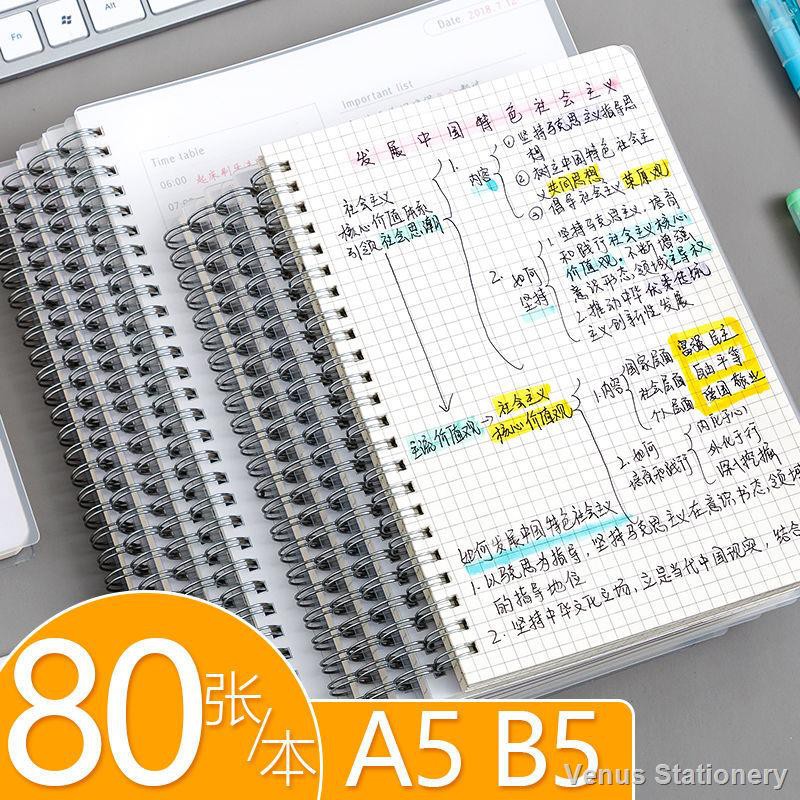 Fn
Alt
Date: 2018.7.12
Important list
Time table
06:00
07:00
发展中国特色社会主义
社会主义
核心价值体系
引领社会思潮
1.
内容
① 坚持马克思主义指导思
想
② 树立中国特色社会主
义共同思想
③ 倡导社会主义荣辱观
2.
如何
坚持
1. 坚持马克思主义,培育
和践行社会主义核心
价值观,不断增强
意识形态领域主导权
2. 推动中华优秀传统
主义创新性发展
主流价值观→
社会主义
核心价值观
1.内容
国家层面 富强民主
社会层面 自由平等
个人层面 爱国敬业
2. 如何
培育和践行
内化于心
外化于行
深入挖掘
如何发展中国特色社会主义
1. 以马克思为指导,坚持马克思主义在意识形态领域
的指导地位
2. 坚持中华文化立场,立足当代中国现实,结合
80张/本
A5 B5
Venus Stationery